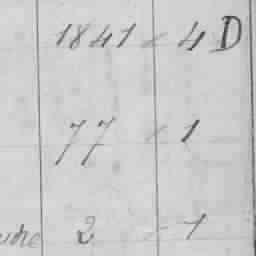 1841 4 D
77 1
2 1